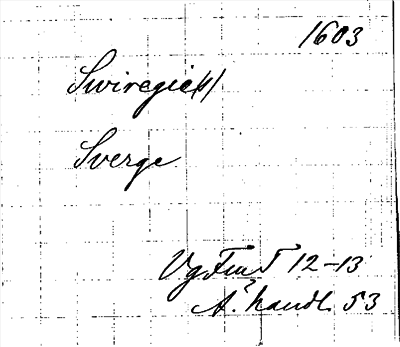 1603
Swiregie(s)
Sverge
VgFmT 12-13
A: handl. 53